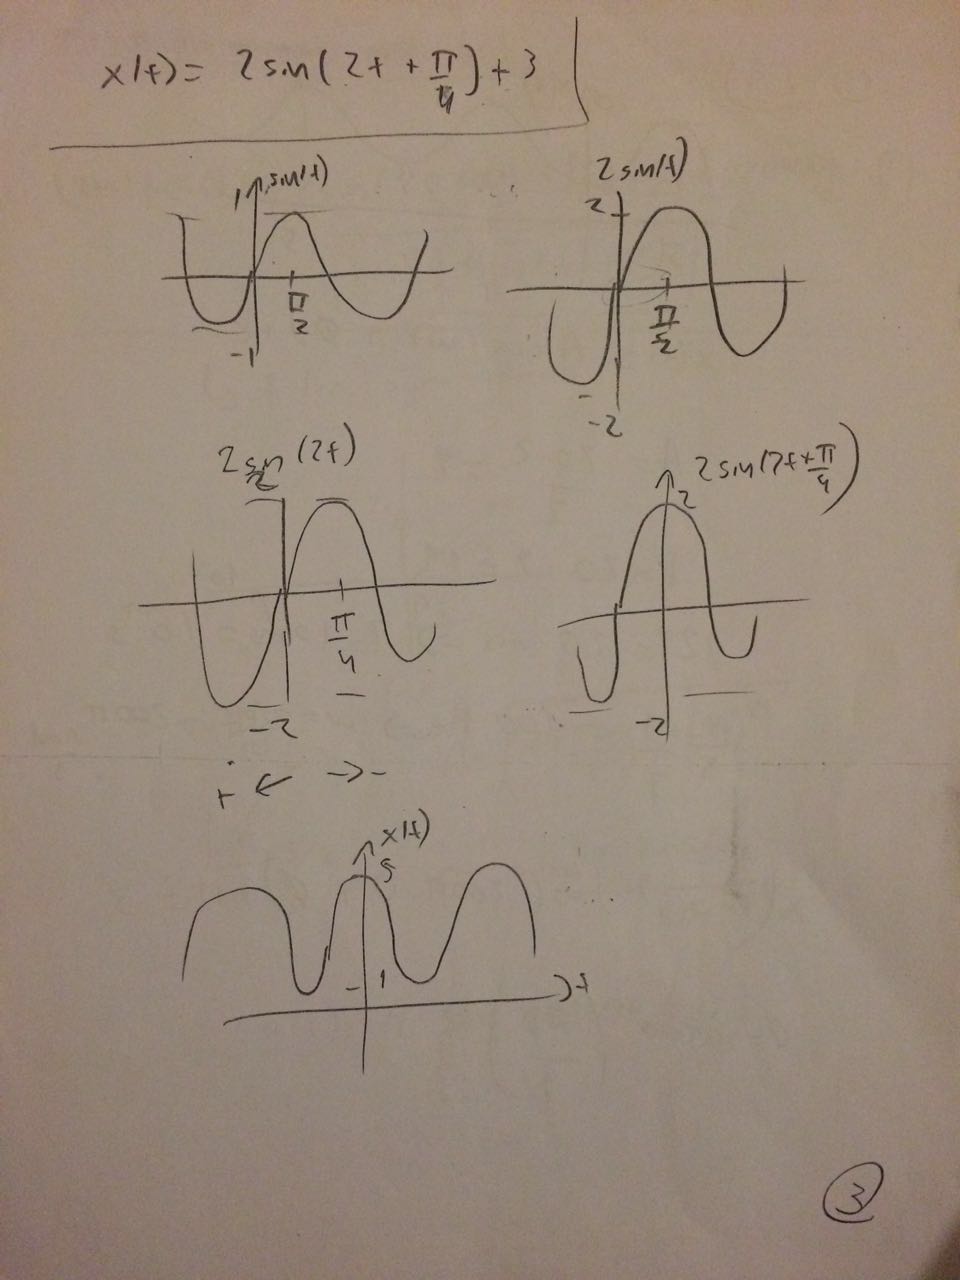 x(t) = 2 sin(2t + π/4) + 3
1 sin(t)
π/2
-1
2 sin(t)
2
π/2
-2
2 sin(2t)
π/4
-2
2 sin(2t + π/4)
2
-2
+ ← → -
x(t)
5
1
t
3